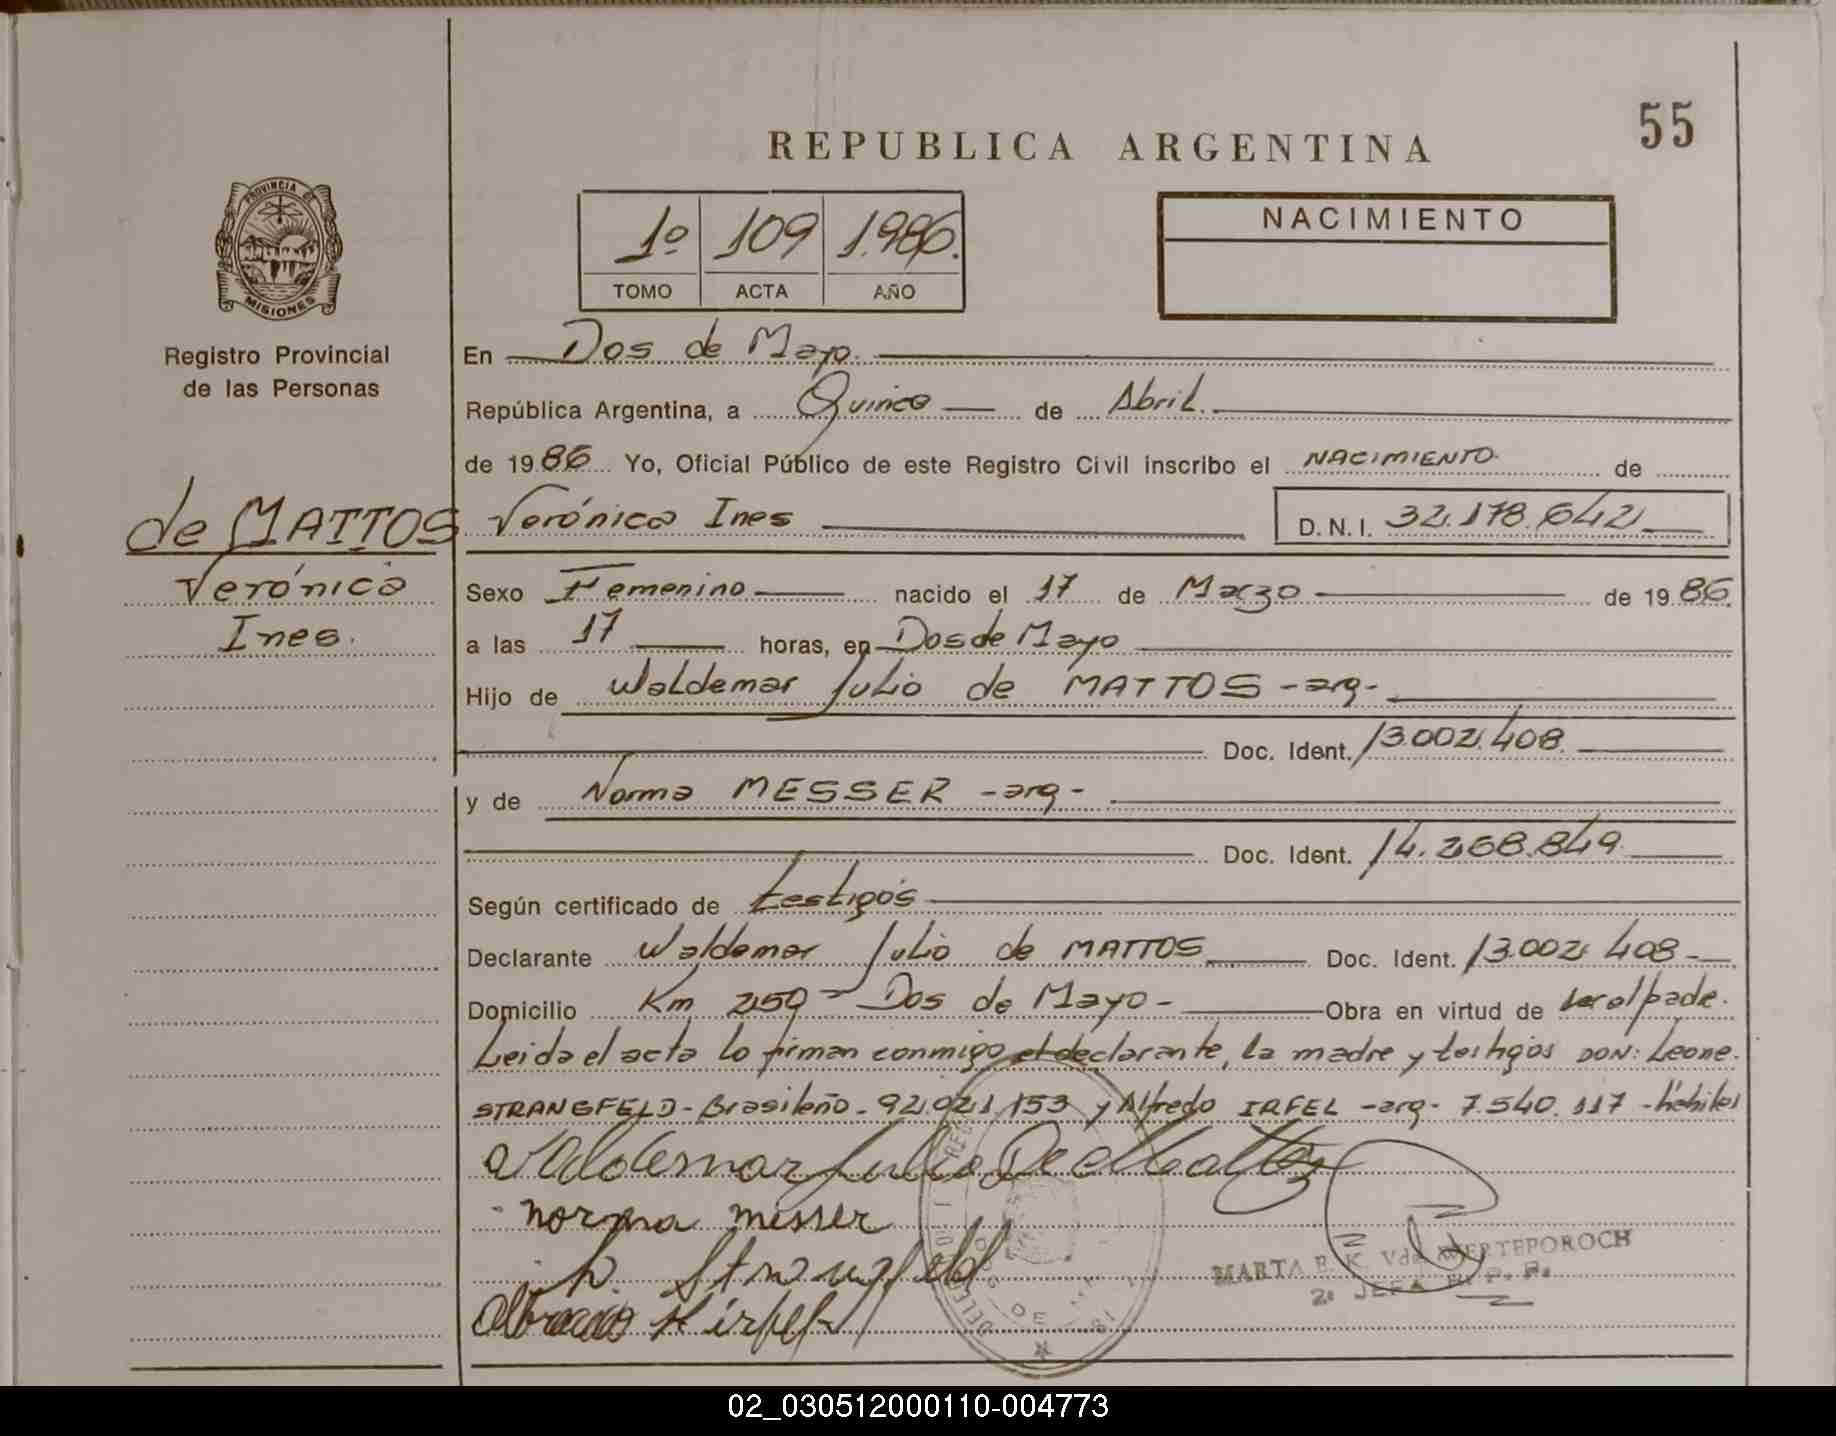 55
REPUBLICA ARGENTINA
PROVINCIA DE
MISIONES
Registro Provincial
de las Personas
1º 109 1.986.
TOMO ACTA AÑO
NACIMIENTO
de MATTOS
Verónica
Ines.
En Dos de Mayo.
República Argentina, a Quince de Abril.
de 1986 Yo, Oficial Público de este Registro Civil inscribo el NACIMIENTO de
Verónica Ines D.N.I. 32.178.642
Sexo Femenino nacido el 17 de Marzo de 1986.
a las 17 horas, en Dos de Mayo
Hijo de Waldemar Julio de MATTOS -arg-
Doc. Ident. 13.002.408.
y de Norma MESSER -arg-
Doc. Ident. 14.268.849
Según certificado de testigos
Declarante Waldemar Julio de MATTOS Doc. Ident. 13.002 408-
Domicilio Km 250 - Dos de Mayo - Obra en virtud de
Leida el acta lo firman conmigo el declarante, la madre y testigos DON: Leone.
STRANGFELD - Brasileño - 92.021.153 y Alfredo IRFEL -arg- 7.540.117 - hábiles
Valdemar Julio De Mattos
norma messer
Strangfeld
MARTA E. K. Vda. WERTEPOROCH
2a JEFA R. P. P.
02_030512000110-004773